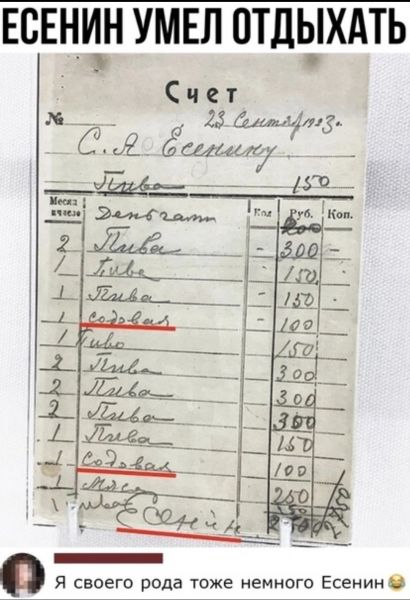 ЕСЕНИН УМЕЛ ОТДЫХАТЬ
Счет
№ 23 Сентября 1923.
С. А Есенину
Пива 150
Месяц и число Деньгами Кол Руб. Коп.
2 Пива - 300 -
1 Пиво 150
1 Пива - 150
1 Содовая - 100
1 Пиво 150
2 Пива 300
2 Пива 300
2 Пива 300
1 Пиво 150
1 Содовая 100
1 Мясо 250
1 Пиво 150
Есенин
Я своего рода тоже немного Есенин😂